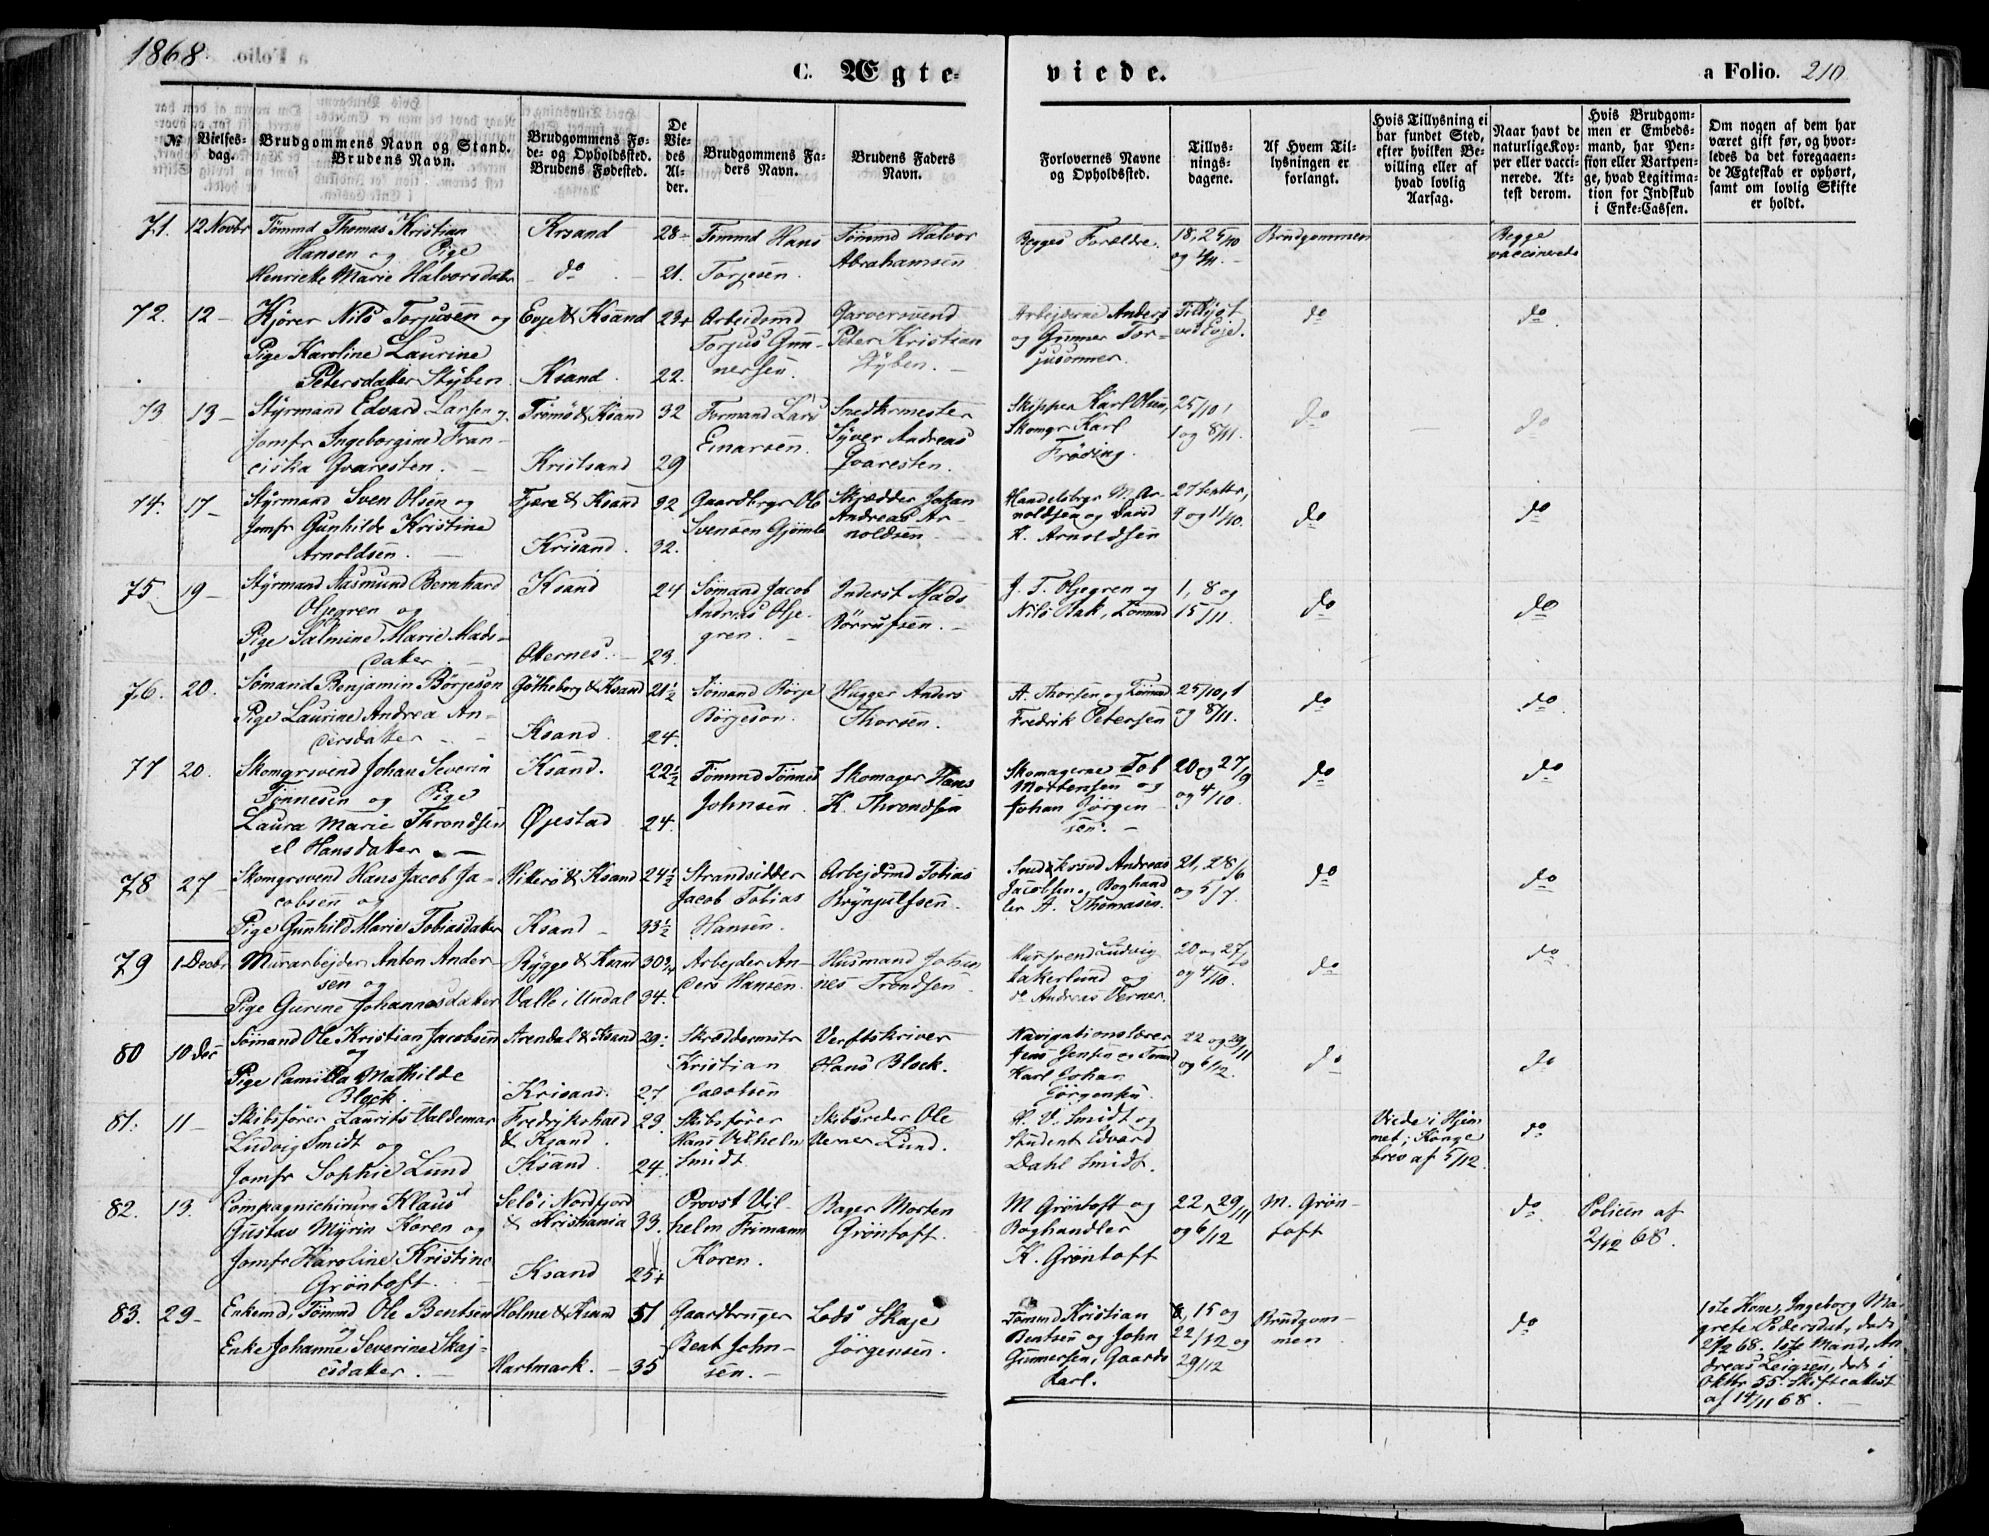 1868.
C. Ægte-
viede.
a Folio. 210
№
Vielses-
dag.
Brudgommens Navn og Stand.
Brudens Navn.
Brudgommens Fø-
de- og Opholdssted.
Brudens Fødested.
De
Vie-
des
Al-
der.
Brudgommens Fa-
ders Navn.
Brudens Faders
Navn.
Forlovernes Navne
og Opholdssted.
Tillys-
nings-
dagene.
Af Hvem Til-
lysningen er
forlangt.
Hvis Tillysning ei
har fundet Sted,
efter hvilken Be-
villing eller af
hvad lovlig
Aarsag.
Naar havt de
naturlige Kop-
per eller vacci-
nerede. At-
test derom.
Hvis Brudgom-
men er Embeds-
mand, har Pen-
sion eller Vartpen-
ge, hvad Legitima-
tion for Indskud
i Enke-Cassen.
Om nogen af dem har
været gift før, og hvor-
ledes da det foregaaen-
de Ægteskab er ophørt,
samt om lovlig Skifte
er holdt.
71. 12 Novbr
Tømmd Thomas Kristian
Hansen og Pige
Henriette Marie Halvorsdatter
Krsand
do
28
21.
Tømmd Hans
Torjesen.
Tømmd Halvor
Abrahamsen
Begges Forældre.
18, 25/10
og 1/11.
Brudgommen
Begge
vaccinerede
72. 12 -
Kjører Nils Torjusen og
Pige Karoline Laurine
Petersdatter Stÿben.
Evje & Ksand
Ksand.
22.
Arbeidsmd
Torjus Gun-
nersen.
Garversvend
Peter Kristian
Stÿben.
Arbejderne Anders
og Gunner Tor-
jusønner.
Tillyst
ved Evje.
do
do
73 13 -
Styrmand Edvard Larsen og
Jomfr Ingeborgine Fran-
ciska Qvaresten.
Tromö & Ksand
Kristsand
32
29
Formand Lars
Einarsen.
Snedkrmester
Syver Andreas
Qvaresten.
Skipper Karl Olsen,
Skomgr Karl
Fröding.
25/10,
1 og 8/11.
do
do
74. 17 -
Styrmand Sven Olsen og
Jomfr Gunhilde Kristine
Arnoldsen.
Fjære & Ksand
Krisand.
32.
32.
Gaardbrgr Ole
Svensen Gjömle
Skrædder Johan
Andreas Ar-
noldsen
Handelsbrgr M. Ar-
noldsen og
K. Arnoldsen
27 Septbr,
4 og 11/10.
do
do
75. 19 -
Styrmand Aasmund Bernhard
Oljegren og
Pige Salmine Marie Mads-
datter.
Ksand
Otternes.
24
23.
Sömand Jacob
Andreas Olje-
gren.
Inderst Mads
Börrufsen.
J. T. Oljegren og
Nils Aak, Tömmd
1, 8 og
15/11.
do
do
76. 20.
Sömand Benjamin Börjeson
Pige Laurine Andrea An-
dersdatter
Götheborg & Ksand
Ksand.
21½
24.
Sömand Börje
Börjeson.
Hugger Anders
Thorsen.
A. Thorsen og Tömmd
Fredrik Petersen
25/10, 1
og 8/11.
do
do
77 20.
Skomgrsvend Johan Severin
Tönnesen og Pige
Laura Marie Throndsen
el Hansdatter.
Ksand.
Øjestad
22½
24.
Tömmd Tönnes
Johnsen
Skomager Hans
K. Throndsen
Skomagerne Tob
Mortensen og
Johan Jörgen-
sen.
20 og 27/9
og 4/10.
do
do
78 27 -
Skomgrsvend Hans Jacob Ja-
cobsen og
Pige Gunhild Marie Tobiasdatter
Hitterö & Ksand
Ksand
24½
33½
Strandsidder
Jacob Tobias
Hansen.
Arbejdmd Tobias
Brynjulfsen.
Andreas
Jacobsen. Boghand
ler A. Thomasen.
21, 28/6
og 5/7.
do
do
79 1 Decbr
Murarbejder Anton Ander-
sen og
Pige Gurine Johannesdatter
Rygge & Ksand
Valle i Undal
30¾
34.
Arbejder An-
ders Hansen.
Husmand Johan-
nes Trondsen
Mursvend Ludvig
og
do Andreas Verner.
20 og 27/9
og 4/10.
do
do
80 10 Dec
Sömand Ole Kristian Jacobsen
og
Pige Camilla Mathilde
Block.
Arendal & Ksand
Krisand.
29.
27
Skræddermstr
Kristian
Jacobsen
Verftskriver
Hans Block.
Navigationslærer
Jens Jensen og Tømmd
Karl Johan
Jörgensen.
22 og 29/11
og 6/12.
do
do
81. 11 -
Skibsfører Laurits Valdemar
Ludvig Smidt og
Jomfr Sophie Lund
Fredrikshald
& Ksand.
Ksand.
29.
24.
Skibsfører
Hans Vilhelm
Smidt
Skibsreder Ole
Verner Lund.
H. V. Smidt og
Student Edvard
Dahl Smidt.
Viede i Hjem-
met; Konge
brev af 5/12.
do
82. 13.
Compagnichirurg Klaus
Gustav Myrin Koren og
Jomfr Karoline Kristine
Gröntoft.
Selö i Nordfjord
& Kristiania
Ksand
33.
25¼
Provst Vil-
helm Frimann
Koren.
Bager Morten
Gröntoft.
M Gröntoft og
Boghandler
K. Gröntoft
22, 29/11
og 6/12
M. Grön-
toft
do
Policen af
2/12 68.
83. 29 -
Enkemd, Tømmd Ole Bentsen
og
Enke Johanne Severine Skaj-
esdatter.
Holme & Ksand
Hartmark.
51.
35
Gaardbruger
Bent John-
sen.
Lods Skaje
Jörgensen.
Tömmd Kristian
Bentsen og John
Gunnersen, Gaards
karl.
8, 15 og
22/12 og
29/12
Brudgom-
men
do
1ste Kone, Ingeborg Ma-
grete Pedersdtr, døde
2/2 68. 1ste Mand, An-
dreas Leigsen, døde i
Oktbr 55. Skifteattest
af 14/11 68.